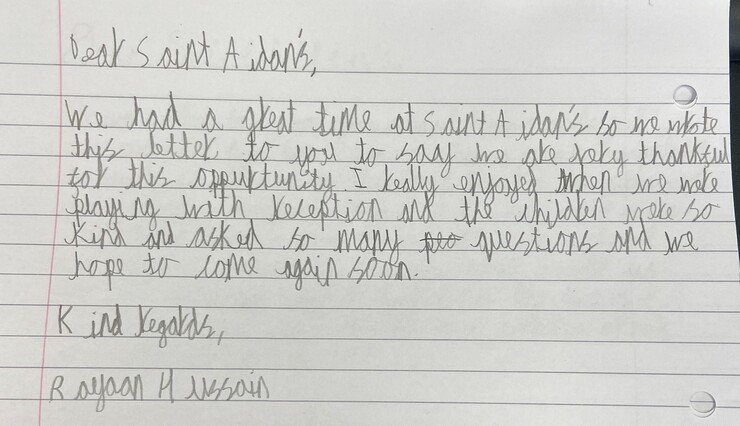 Dear Saint Aidan's,
We had a great time at Saint Aidan's so we wrote
this letter to you to say we are very thankful
for this oppurtunity. I really enjoyed when we were
playing with reception and the children were so
kind and asked so many questions and we
hope to come again soon.
Kind regards,
Rayaan Hussain